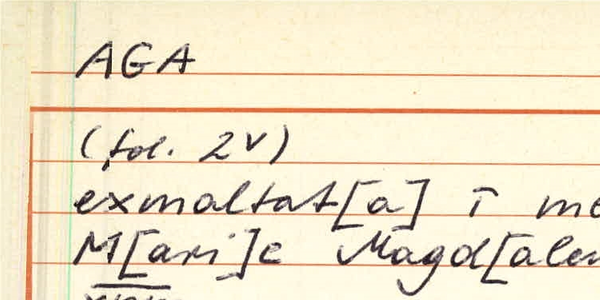 AGA
(fol. 2v)
exmaltat[a] ī
M[ari]e Magd[alen